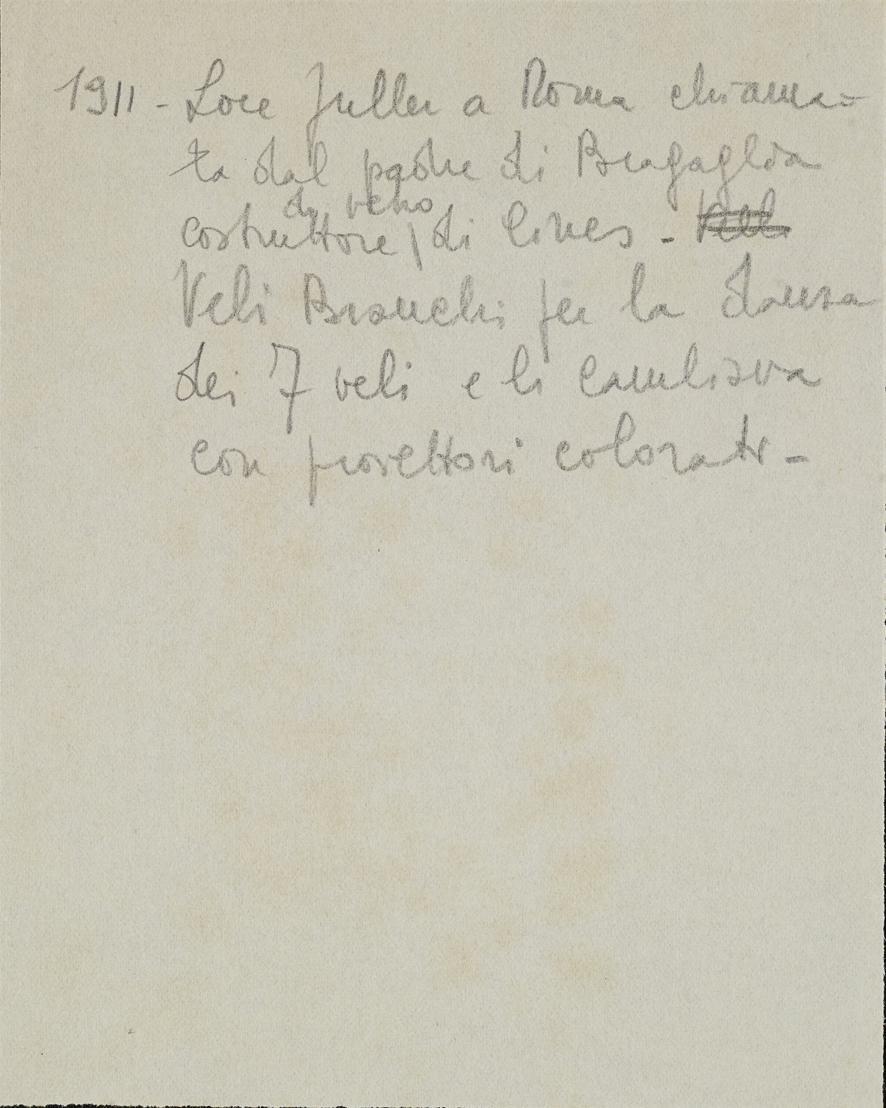 1911 - Loie Fuller a Roma chiama=
ta dal padre di Bragaglia
di vetro
costruttore | di Cines - Veli
Veli Bianchi per la danza
dei 7 veli e li cambiava
con proiettori colorati -